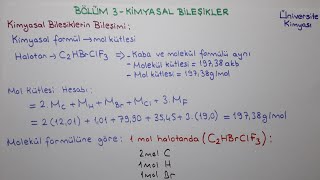 BÖLÜM 3-KİMYASAL BİLEŞİKLER
Üniversite
Kimyası
Kimyasal Bileşiklerin Bileşimi:
Kimyasal formül → mol kütlesi
Halotan → C₂HBrClF₃ ⇒ - Kaba ve molekül formülü aynı
- Molekül kütlesi = 197,38 akb
- Mol kütlesi = 197,38 g/mol
Mol Kütlesi Hesabı:
= 2.M_C + M_H + M_Br + M_Cl + 3.M_F
= 2(12,01) + 1,01 + 79,90 + 35,45 + 3.(19,0) = 197,38 g/mol
Molekül formülüne göre: 1 mol halotanda (C₂HBrClF₃);
2mol C
1mol H
1mol Br